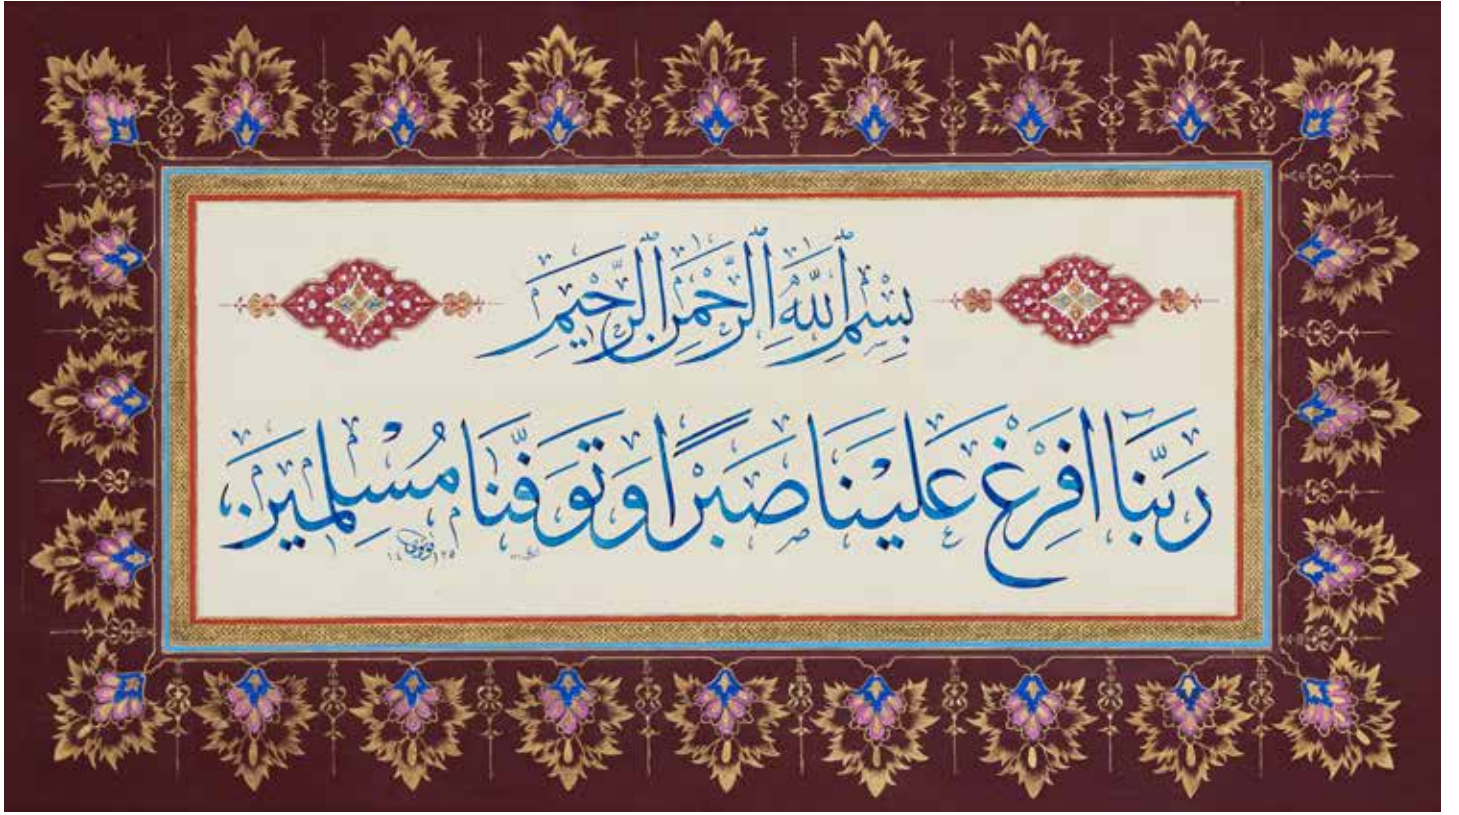 بِسْمِ اللَّهِ الرَّحْمَنِ الرَّحِيمِ
رَبَّنَآ اَفْرِغْ عَلَيْنَا صَبْرًا وَتَوَفَّنَا مُسْلِمِينَ